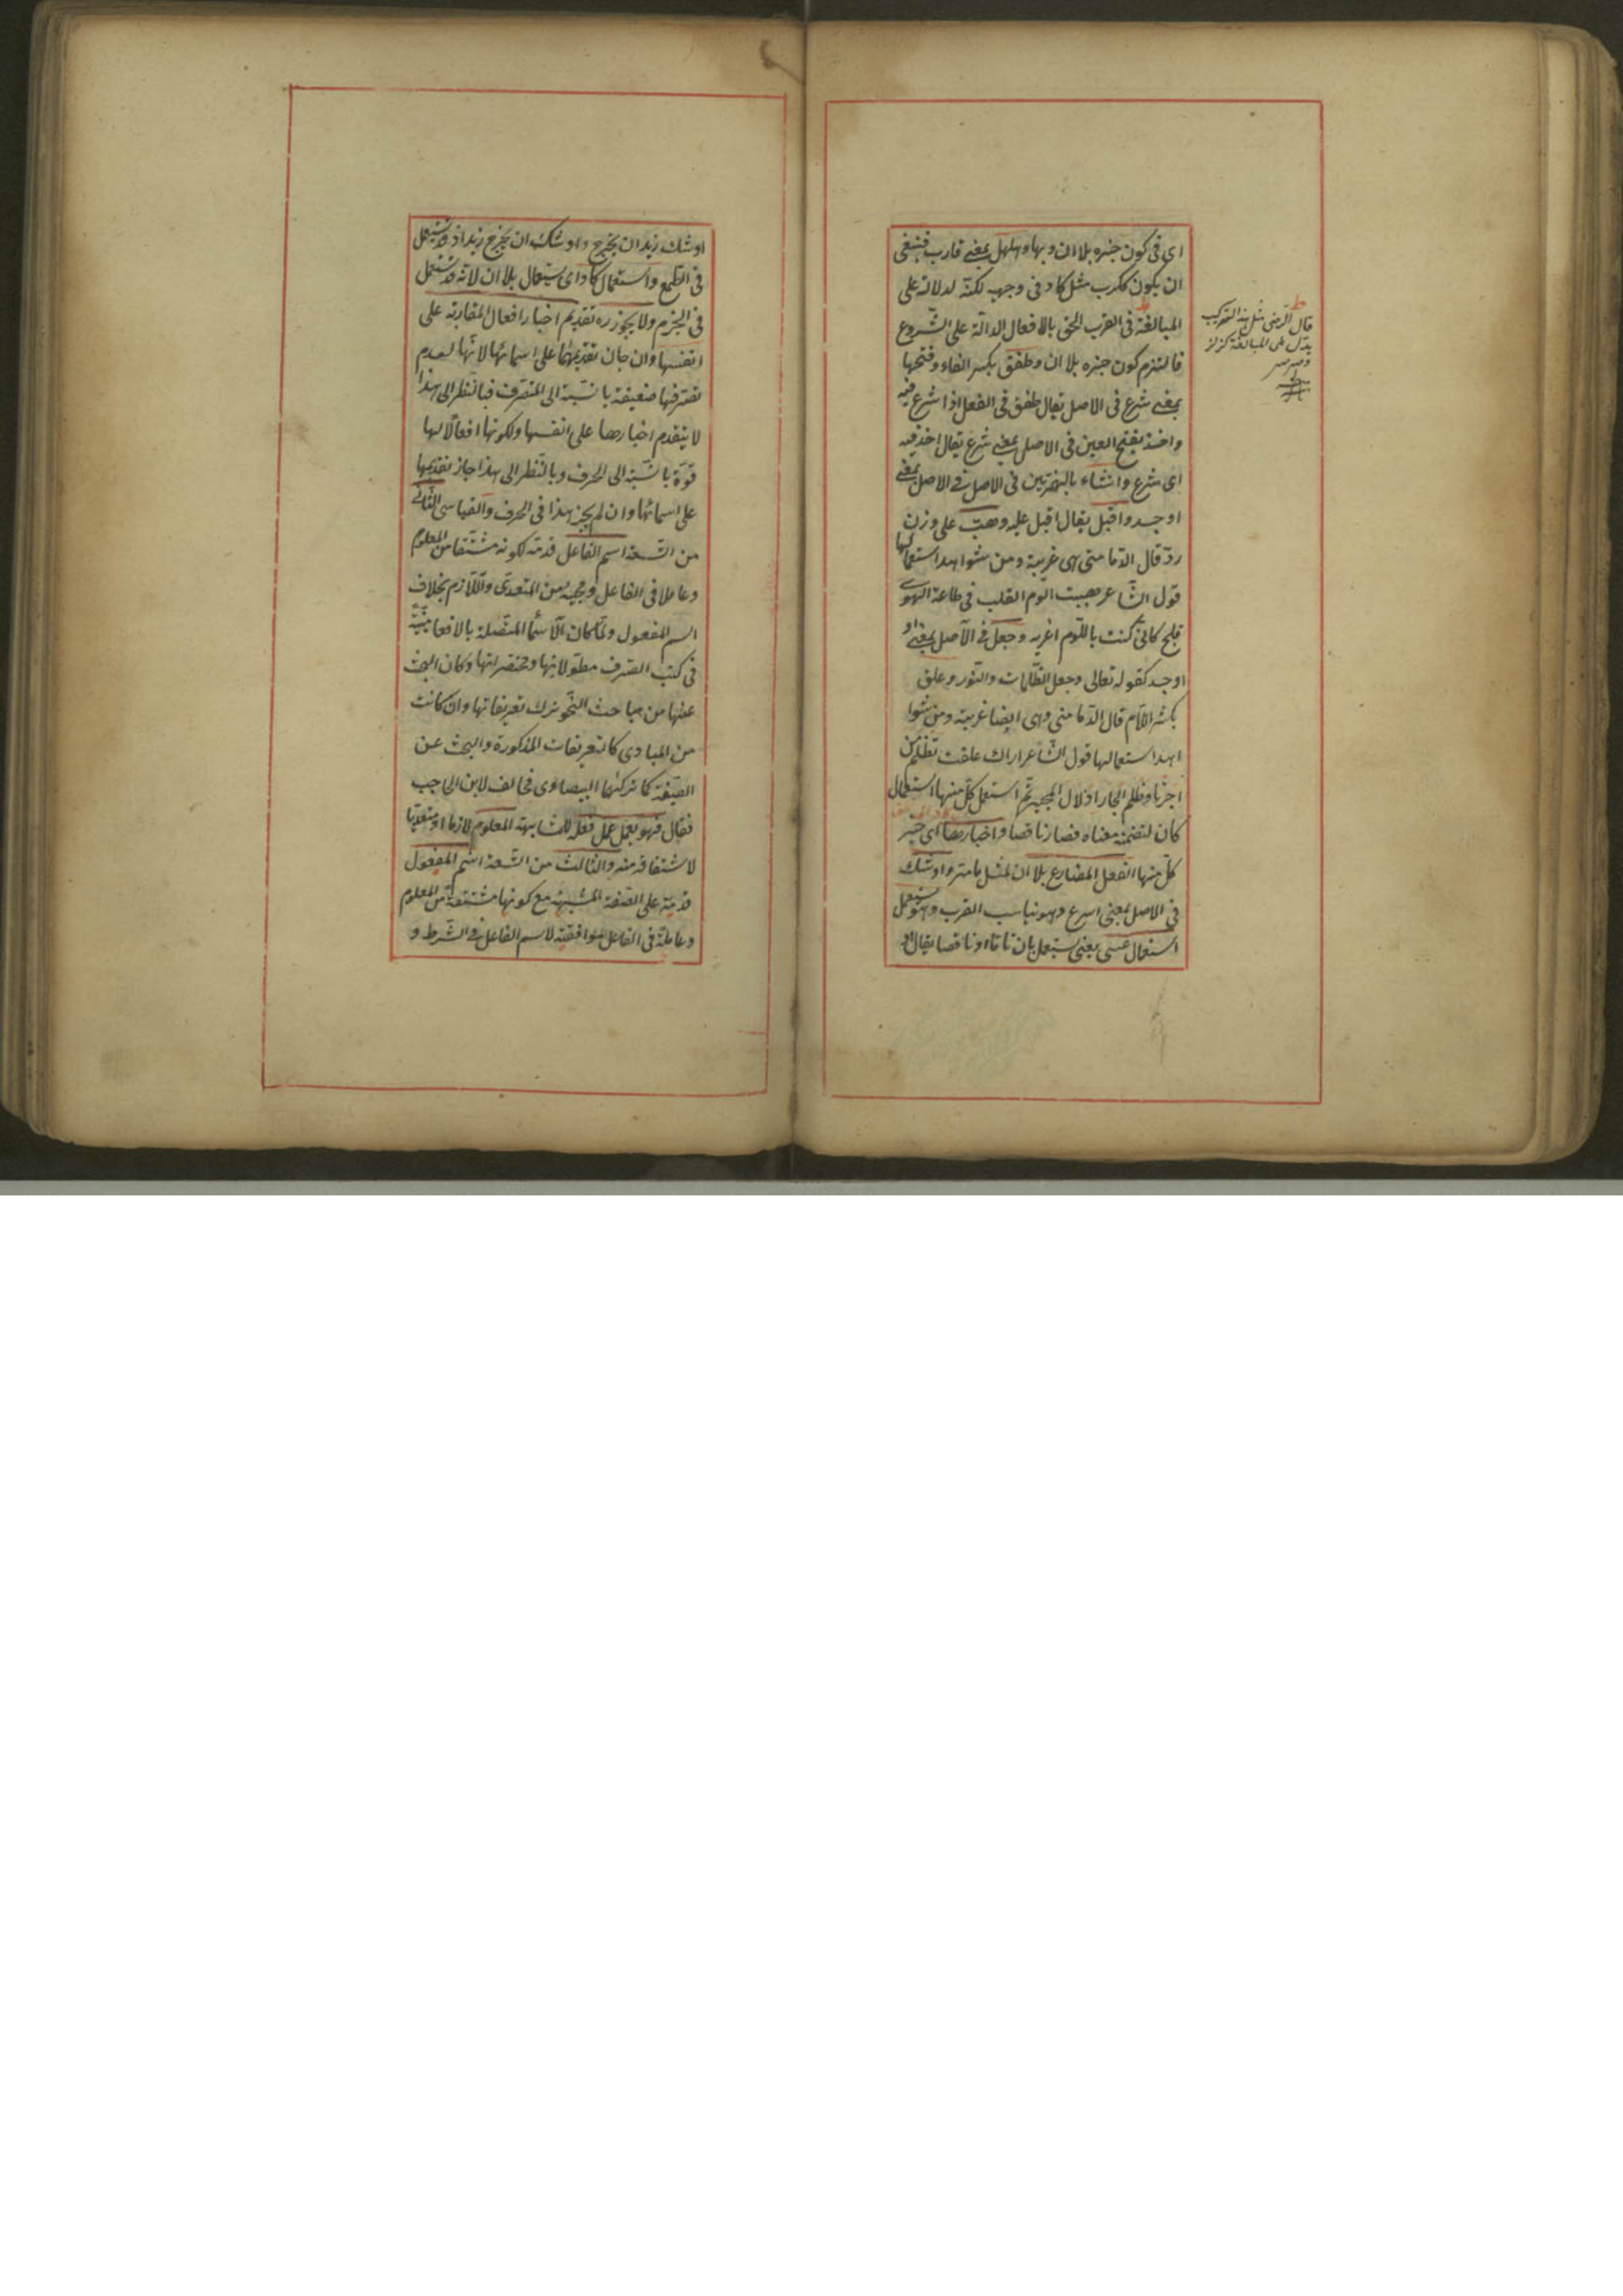 اى فى كون خبره بلا ان وبها وهلهل بمعنى قارب فينبغى
ان يكون ككرب مثل كاد فى وجهيه لكنّه لدلالته على
المبالغة فى القرب الحق بالافعال الدالّة على الشّروع
فالتزم كون خبره بلا ان وطفق بكسر الفاء وفتحها
بمعنى شرع فى الاصل يقال طفق فى الفعل اذا شرع فيه
واخذ بفتح العين فى الاصل بمعنى شرع يقال اخذ فيه
اى شرع وانشاء بالهمزتين فى الاصل فى الاصل بمعنى
اوجد واقبل يقال اقبل عليه وهبّ على وزن
ردّ قال الدّمامينى هى غريبة ومن شواهد استعمالها
قول الشّاعر هببت الوم القلب فى طاعة الهوى
فلج كانّى كنت باللّوم اغريه وجعل فى الاصل بمعنى
اوجد كقوله تعالى وجعل الظّلمات والنّور وعلق
بكسر اللّام قال الدّمامينى وهى ايضا غريبة ومن شوا
اهد استعمالها قول الشّاعر اراك علقت تظلم من
اجرنا وظلم الجار اذلال المجير ثمّ استعمل كلّ منها استعمال
كان لتضمّنه معناه فصار ناقصا واخبارها اى خبر
كلّ منها الفعل المضارع بلا ان لمثل ما مرّ واوشك
فى الاصل بمعنى اسرع وهو يناسب القرب وهو يستعمل
استعمال عسى يعنى يستعمل بان تامّا او ناقصا يقال
قال الرضى مثل هذا التركيب
يدلّ على المبالغة كزلزل
وصرصر
اوشك زيد ان يخرج واوشك ان يخرج زيد اذ قد يستعمل
فى الطّمع واستعمال كاد اى يستعمال بلا ان لانّه قد يستعمل
فى الجزم ولا يجوز ره تقديم اخبار افعال المقاربة على
انفسها وان جان تقديمها على اسمائها لانّها لعدم
تصرّفها ضعيفة بالنّسبة الى المتصرّف فبالنّظر الى هذا
لا يتقدم اخبارها على انفسها ولكونها افعالا لها
قوّة بالنّسبة الى الحرف وبالنّظر الى هذا جاز تقديمها
على اسمائها وان لم يجز هذا فى الحرف والقياسى الثّانى
من التّسعة اسم الفاعل قدّمه لكونه مشتقّا من المعلوم
وعاملا فى الفاعل ومجيئه من المتعدّى واللّازم بخلاف
اسم المفعول ولمّا كان الاسما المتّصلة بالافعال مبيّنة
فى كتب الصّرف مطوّلاتها ومختصراتها وكان البحث
عنها من مباحث النّحو ترك تعريفاتها وان كانت
من المبادى كالتعريفات المذكورة والبحث عن
الصّيغة كما تركها البيضاوى فخالف لابن الحاجب
فقال فهو يعمل عمل فعله لمشابهته المعلوم لازما او متعدّيا
لاشتقاقه منه والثالث من التّسعة اسم المفعول
قدّمه على الصّفة المشبهة مع كونها مشتقّة من المعلوم
وعاملة فى الفاعل لموافقته لاسم الفاعل فى الشّرط و